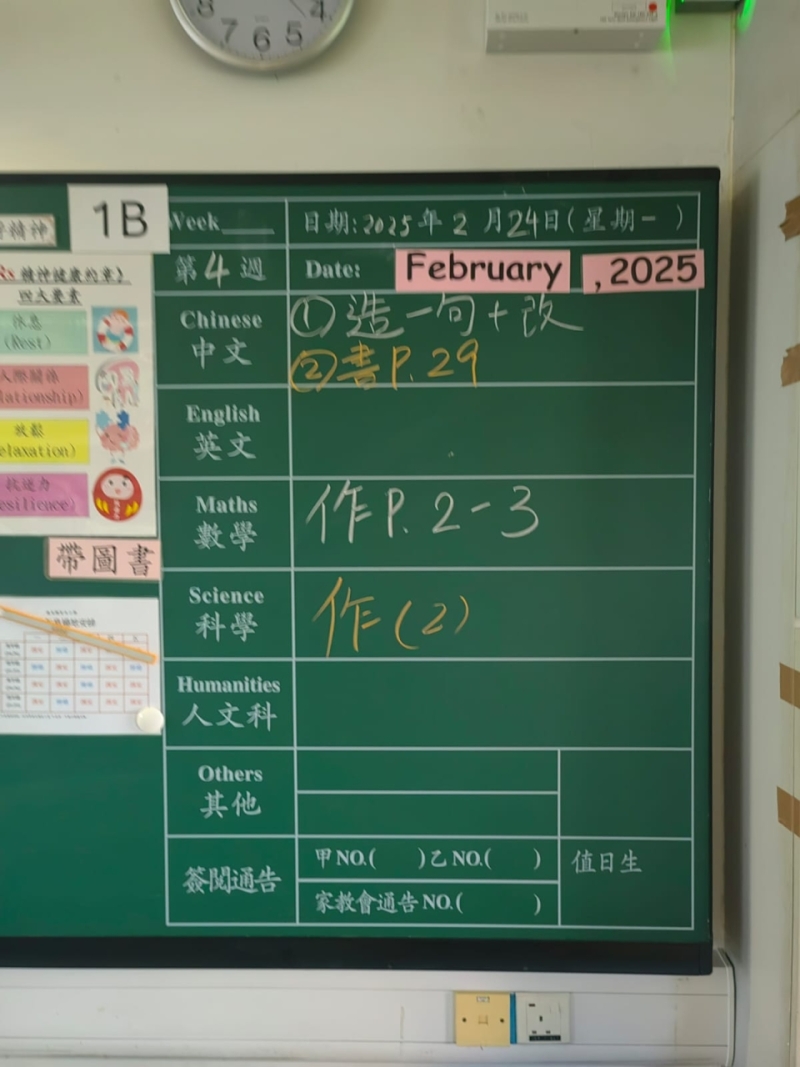 8 7 6 5 4
1B
Week 日期:2025年2月24日(星期一)
精神
第4週 Date: February ,2025
精神健康約章》
四大要素
休息
(Rest)
人際關係
放鬆
抗逆力
帶圖書
Chinese ①造一句+改
中文 ②書P.29
English
英文
Maths
數學 作P.2-3
Science
科學 作(2)
Humanities
人文科
Others
其他
簽閱通告 甲NO.( )乙NO.( ) 值日生
家教會通告NO.( )